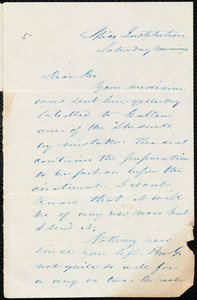 5
Miss Institution
Saturday morning
Dear Bro.
Your medicine
was sent here yesterday
labelled to Callen
one of the Students
by mistake. The oval
contains the preparation
to be put on before the
ointment. I dont
know that it will
be of any use now but
I send it.
Nothing new
since you left. Bro G.
not quite so well for
a day or two. The rest